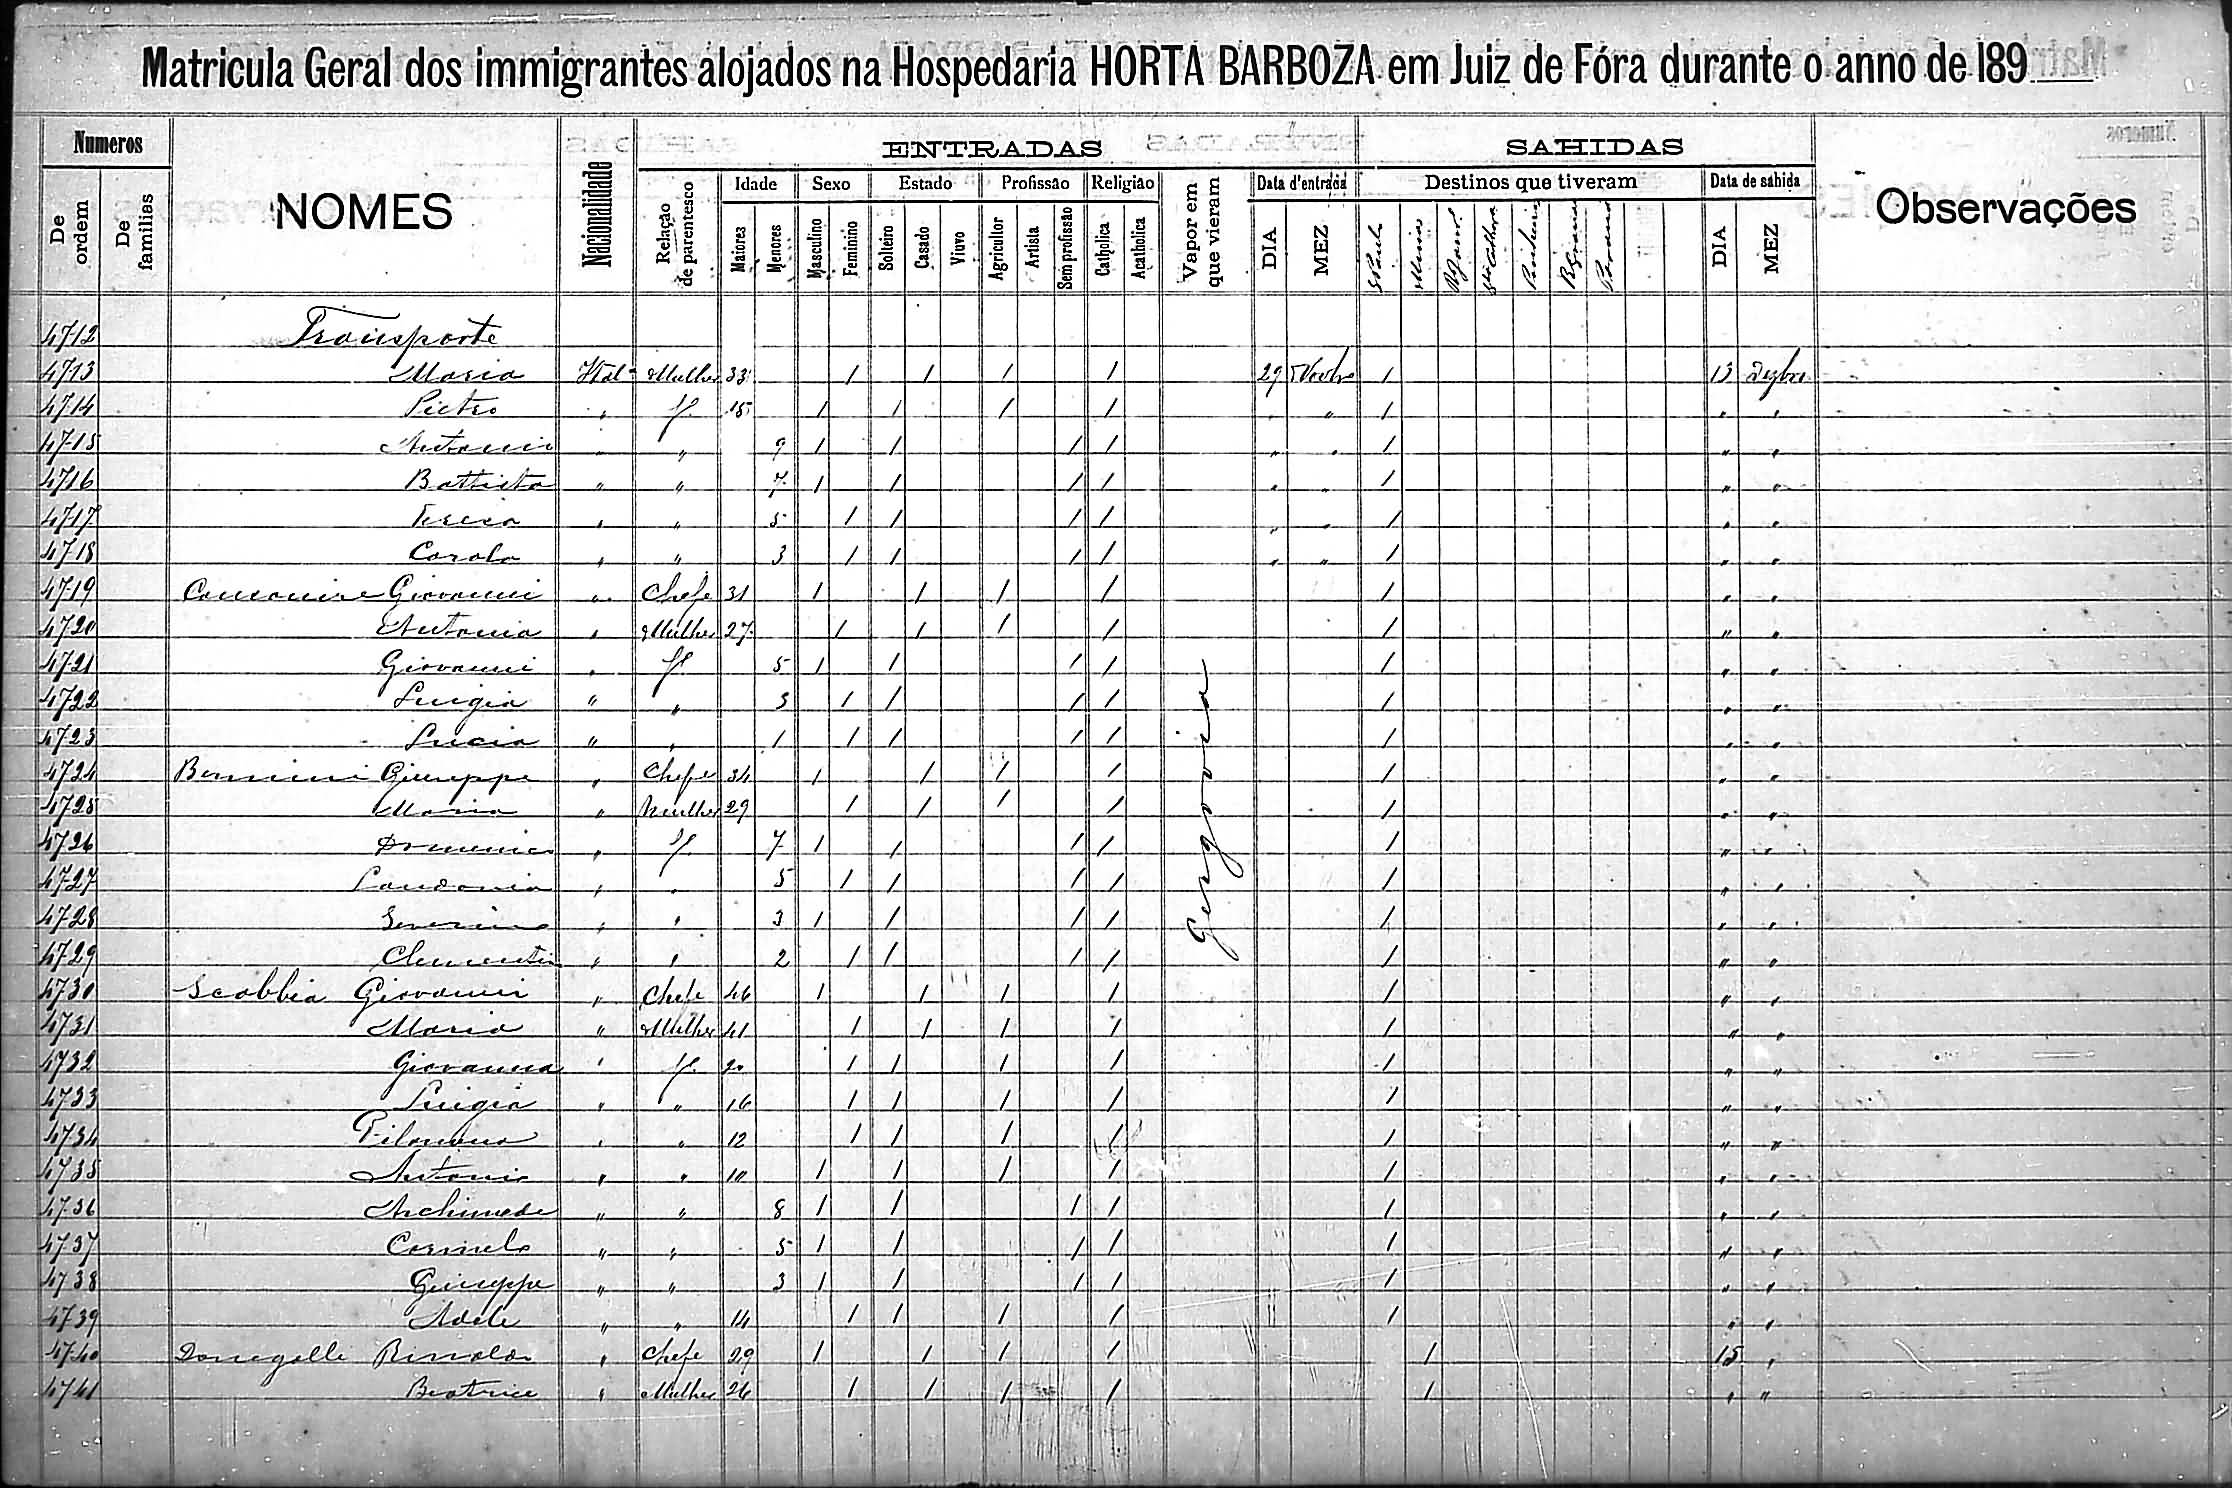 Matricula Geral dos immigrantes alojados na Hospedaria HORTA BARBOZA em Juiz de Fóra durante o anno de 189
Numeros
De ordem
De familias
NOMES
Nacionalidade
ENTRADAS
Relação de parentesco
Idade
Maiores
Menores
Sexo
Masculino
Feminino
Estado
Solteiro
Casado
Viuvo
Profissão
Agricultor
Artista
Sem profissão
Religião
Catholica
Acatholica
Vapor em que vieram
Data d'entrada
DIA
MEZ
SAHIDAS
Destinos que tiveram
S Paulo
Minas
Data de sahida
DIA
MEZ
Observações
4712 Transporte
4713 Maria Ital Mulher 33 1 1 1 1 29 Novbro 1 13 Dezbro
4714 Pietro " f. 15 1 1 1 1 " " 1 " "
4715 Antonio " " 9 1 1 1 1 " " 1 " "
4716 Battista " " 7 1 1 1 1 " " 1 " "
4717 " " 5 1 1 1 1 " " 1 " "
4718 Carola " " 3 1 1 1 1 " " 1 " "
4719 Giovanni " Chefe 31 1 1 1 1 1 " "
4720 Antonia " Mulher 27 1 1 1 1 1 " "
4721 Giovanni " f. 5 1 1 1 1 1 " "
4722 Luigia " " 3 1 1 1 1 1 " "
4723 Lucia " " 1 1 1 1 1 1 " "
4724 Giuseppe " Chefe 34 1 1 1 1 1 " "
4725 Maria " Mulher 29 1 1 1 1 1 " "
4726 Domenico " f. 7 1 1 1 1 1 " "
4727 " " 5 1 1 1 1 1 " "
4728 Severino " " 3 1 1 1 1 1 " "
4729 Clementin " " 2 1 1 1 1 1 " "
4730 Scabbia Giovanni " Chefe 46 1 1 1 1 1 " "
4731 Maria " Mulher 41 1 1 1 1 1 " "
4732 Giovanna " f. 20 1 1 1 1 1 " "
4733 Luigia " " 16 1 1 1 1 1 " "
4734 Filomena " " 12 1 1 1 1 1 " "
4735 Antonio " " 10 1 1 1 1 1 " "
4736 Archimede " " 8 1 1 1 1 1 " "
4737 Carmelo " " 5 1 1 1 1 1 " "
4738 Giuseppe " " 3 1 1 1 1 1 " "
4739 Adele " " 14 1 1 1 1 1 " "
4740 Donegalli Rinaldo " Chefe 29 1 1 1 1 1 15 "
4741 Beatrice " Mulher 26 1 1 1 1 1 " "
Gergovia